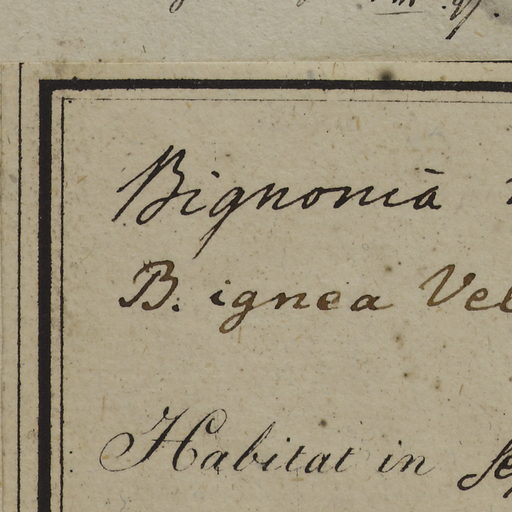 Bignonia
B. ignea Vel
Habitat in